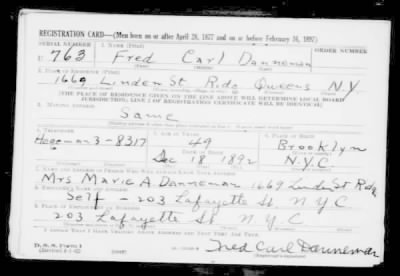 REGISTRATION CARD—(Men born on or after April 28, 1877 and on or before February 16, 1897)
SERIAL NUMBER 1. NAME (Print) ORDER NUMBER
U 763 Fred Carl Danneman
(First) (Middle) (Last)
2. PLACE OF RESIDENCE (Print)
1669 Linden St Ridg Queens N.Y.
[THE PLACE OF RESIDENCE GIVEN ON THE LINE ABOVE WILL DETERMINE LOCAL BOARD
JURISDICTION; LINE 2 OF REGISTRATION CERTIFICATE WILL BE IDENTICAL]
3. MAILING ADDRESS
Same
4. TELEPHONE 5. AGE IN YEARS 6. PLACE OF BIRTH
49 Brooklyn
3-8317 DATE OF BIRTH
Dec 18 1892 N.Y.C.
7. NAME AND ADDRESS OF PERSON WHO WILL ALWAYS KNOW YOUR ADDRESS
Mrs Marie A Danneman 1669 Linden St Ridg
8. EMPLOYER'S NAME AND ADDRESS
Self - 203 Lafayette St. N Y C
9. PLACE OF EMPLOYMENT OR BUSINESS
203 Lafayette St. N.Y.C
I AFFIRM THAT I HAVE VERIFIED ABOVE ANSWERS AND THAT THEY ARE TRUE.
D. S. S. Form 1
Fred Carl Danneman